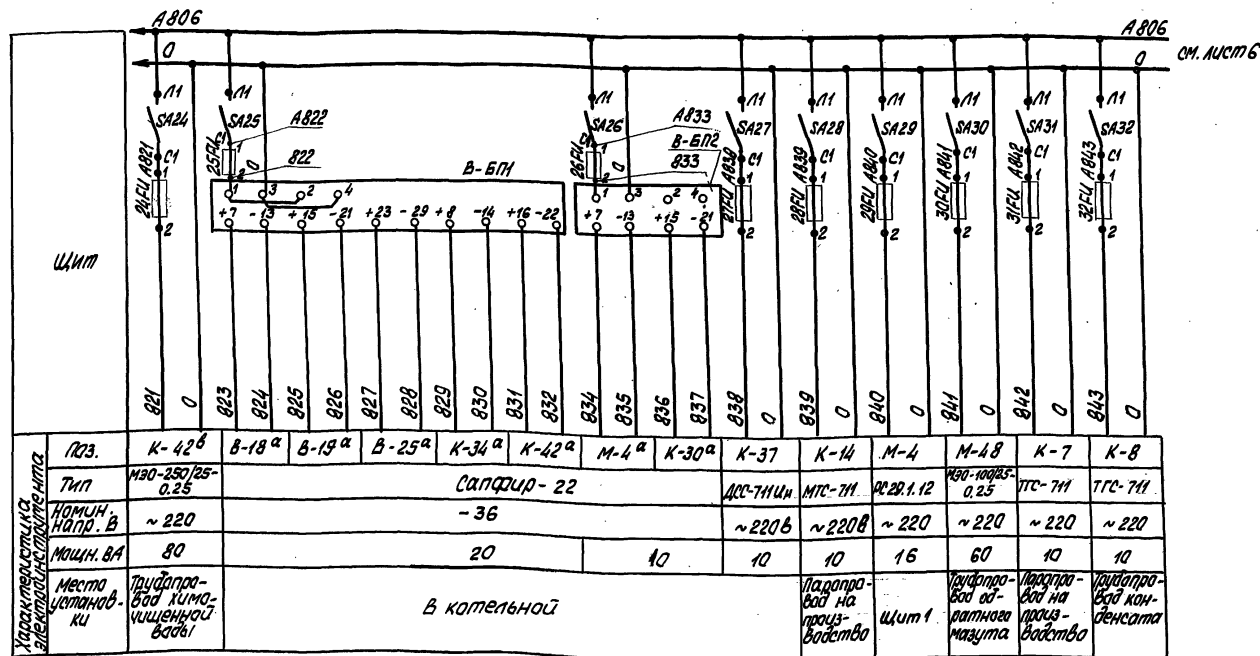 А806
А806
0
0
см. лист 6
Щит
Л1
SA24
С1
А821
1
24FU
2
Л1
SA25
С1
А822
1
25FU
2
822
0
В-БП1
1 3 2 4
+7 -13 +15 -21 +23 -29 +8 -14 +16 -22
Л1
SA26
С1
А833
В-БП2
1
26FU
2
833
0
1 3 2 4
+7 -13 +15 -21
Л1
SA27
С1
А838
1
27FU
2
Л1
SA28
С1
А839
1
28FU
2
Л1
SA29
С1
А840
1
29FU
2
Л1
SA30
С1
А841
1
30FU
2
Л1
SA31
С1
А842
1
31FU
2
Л1
SA32
С1
А843
1
32FU
2
821 0 823 824 825 826 827 828 829 830 831 832 834 835 836 837 838 0 839 0 840 0 841 0 842 0 843 0
Характеристика
электроинструмента
Поз. К-42в В-18а В-19а В-25а К-34а К-42а М-4а К-30а К-37 К-14 М-4 М-48 К-7 К-8
Тип МЭО-250/25-0.25 Сапфир-22 ДСС-711Ин МТС-711 РС29.1.12 МЭО-100/25-0,25 ТГС-711 ТГС-711
Номин. напр. В ~220 -36 ~220в ~220в ~220 ~220 ~220 ~220
Мощн. ВА 80 20 10 10 10 16 60 10 10
Место
установ-
ки
Трубопро-
вод химо-
чищенной
воды
В котельной
Паропро-
вод на
произ-
водство
Щит 1
Трубопро-
вод об-
ратного
мазута
Паропро-
вод на
произ-
водство
Трубопро-
вод кон-
денсата